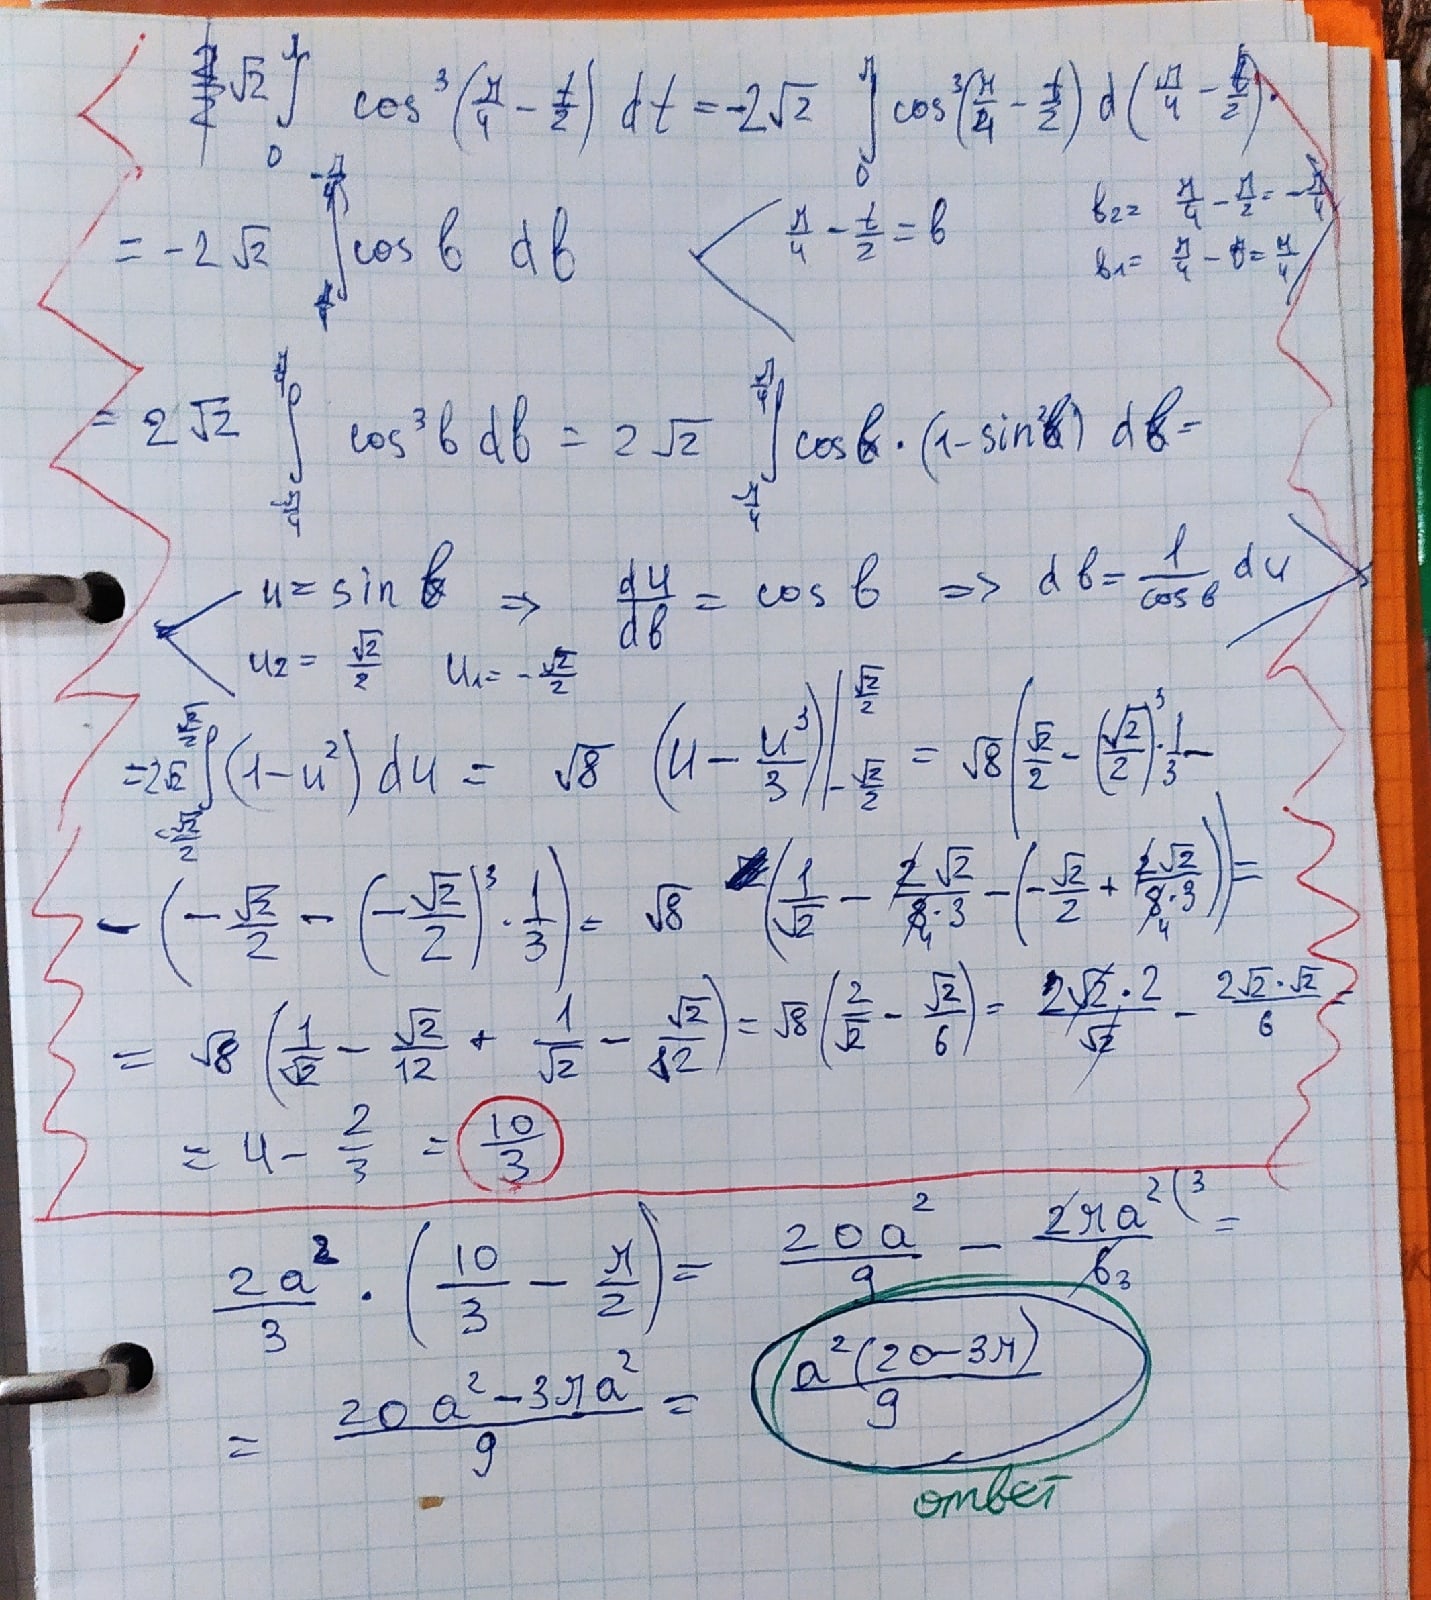 √2 ∫₀^π cos³(π/4 − t/2) dt = −2√2 ∫₀^π cos³(π/4 − t/2) d(π/4 − t/2) =
= −2√2 ∫_{π/4}^{−π/4} cos b db < π/4 − t/2 = b b₂ = π/4 − π/2 = −π/4
b₁ = π/4 − 0 = π/4 >
= 2√2 ∫_{−π/4}^{π/4} cos³b db = 2√2 ∫_{−π/4}^{π/4} cos b · (1 − sin²b) db =
< u = sin b => du/db = cos b => db = 1/cos b du >
u₂ = √2/2 u₁ = −√2/2
= 2√2 ∫_{−√2/2}^{√2/2} (1 − u²) du = √8 (u − u³/3) |_{−√2/2}^{√2/2} = √8 (√2/2 − (√2/2)³ · 1/3 −
− (−√2/2 − (−√2/2)³ · 1/3) = √8 (1/√2 − 2√2/8·3 − (−√2/2 + 2√2/8·3)) =
= √8 (1/√2 − √2/12 + 1/√2 − √2/12) = √8 (2/√2 − √2/6) = 2√2·2/√2 − 2√2·√2/6 =
= 4 − 2/3 = 10/3
2a²/3 · (10/3 − π/2) = 20a²/9 − 2πa²/6 3 (3 =
= 20a² − 3πa²/9 = a²(20 − 3π)/9
ответ